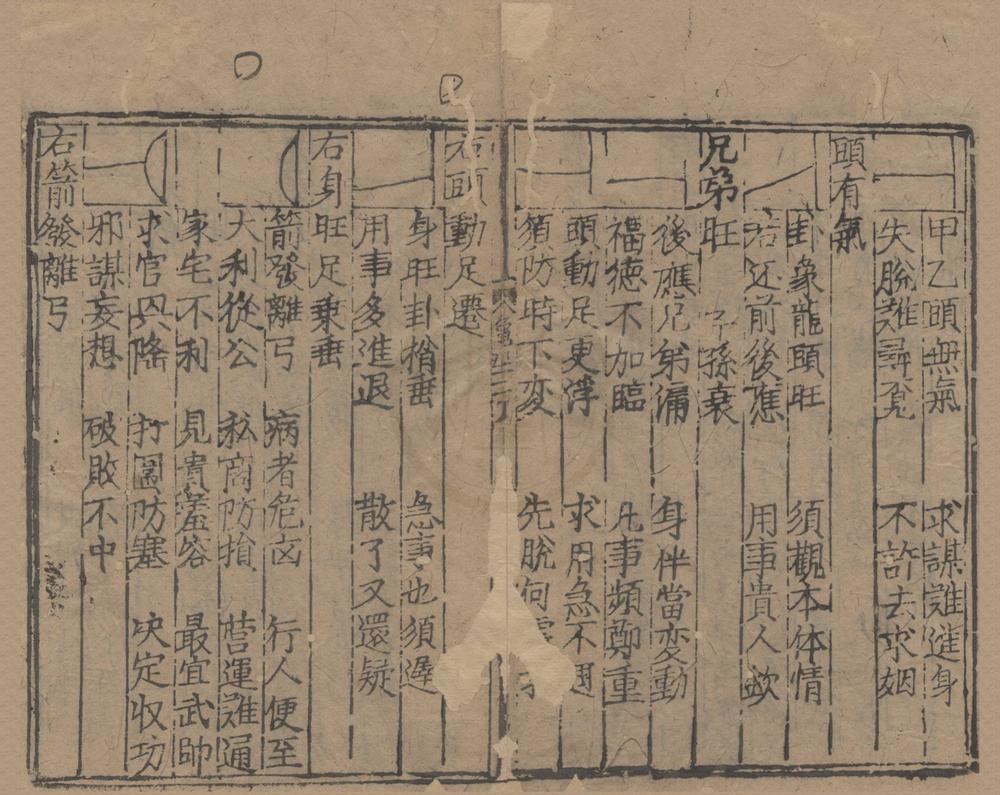 甲乙頭無氣 求謀難進身
失脫難尋覓 不許去求姻
頭有氣
卦象龍頭旺 須觀本体情
若还前後應 用事貴人欽
兄弟旺 子孫衰
後應兄弟漏 身伴當变動
福德不加臨 凡事頻鄭重
頭動足更浮 求用急不
須防時下变 先脫何
右頭動足遷
身旺卦梢垂 急事也須遲
用事多進退 散了又還疑
右身旺足乗垂
箭發離弓 病者危凶 行人便至
大利從公 私商防損 营運难通
家宅不利 見貴羞容 最宜武帥
求官凶降 打圍防塞 决定収功
邪謀妄想 破敗不中
右箭發離弓